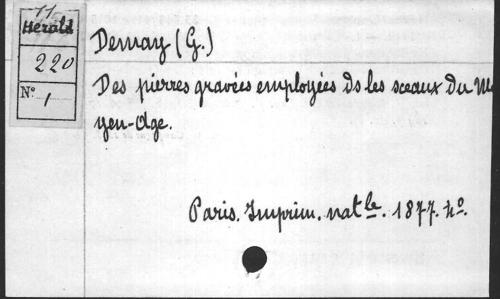 Hérold
220
N° 1
Demay (G.)
Des pierres gravées employées ds les sceaux du Mo
yen-Age.
Paris. Imprim. natle. 1877. 4°.